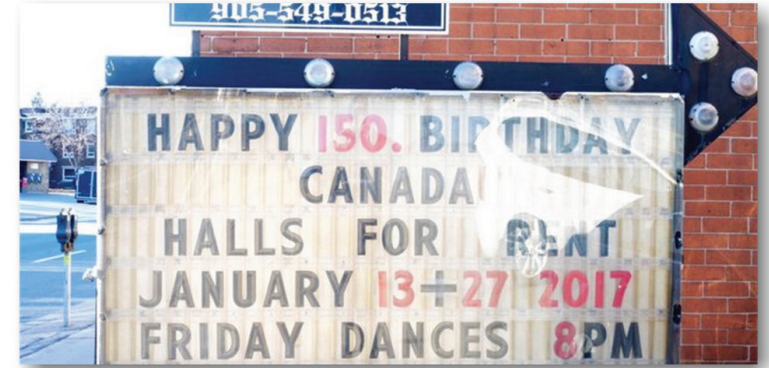 905-549-0513
HAPPY 150. BIRTHDAY
CANADA
HALLS FOR RENT
JANUARY 13+27 2017
FRIDAY DANCES 8PM